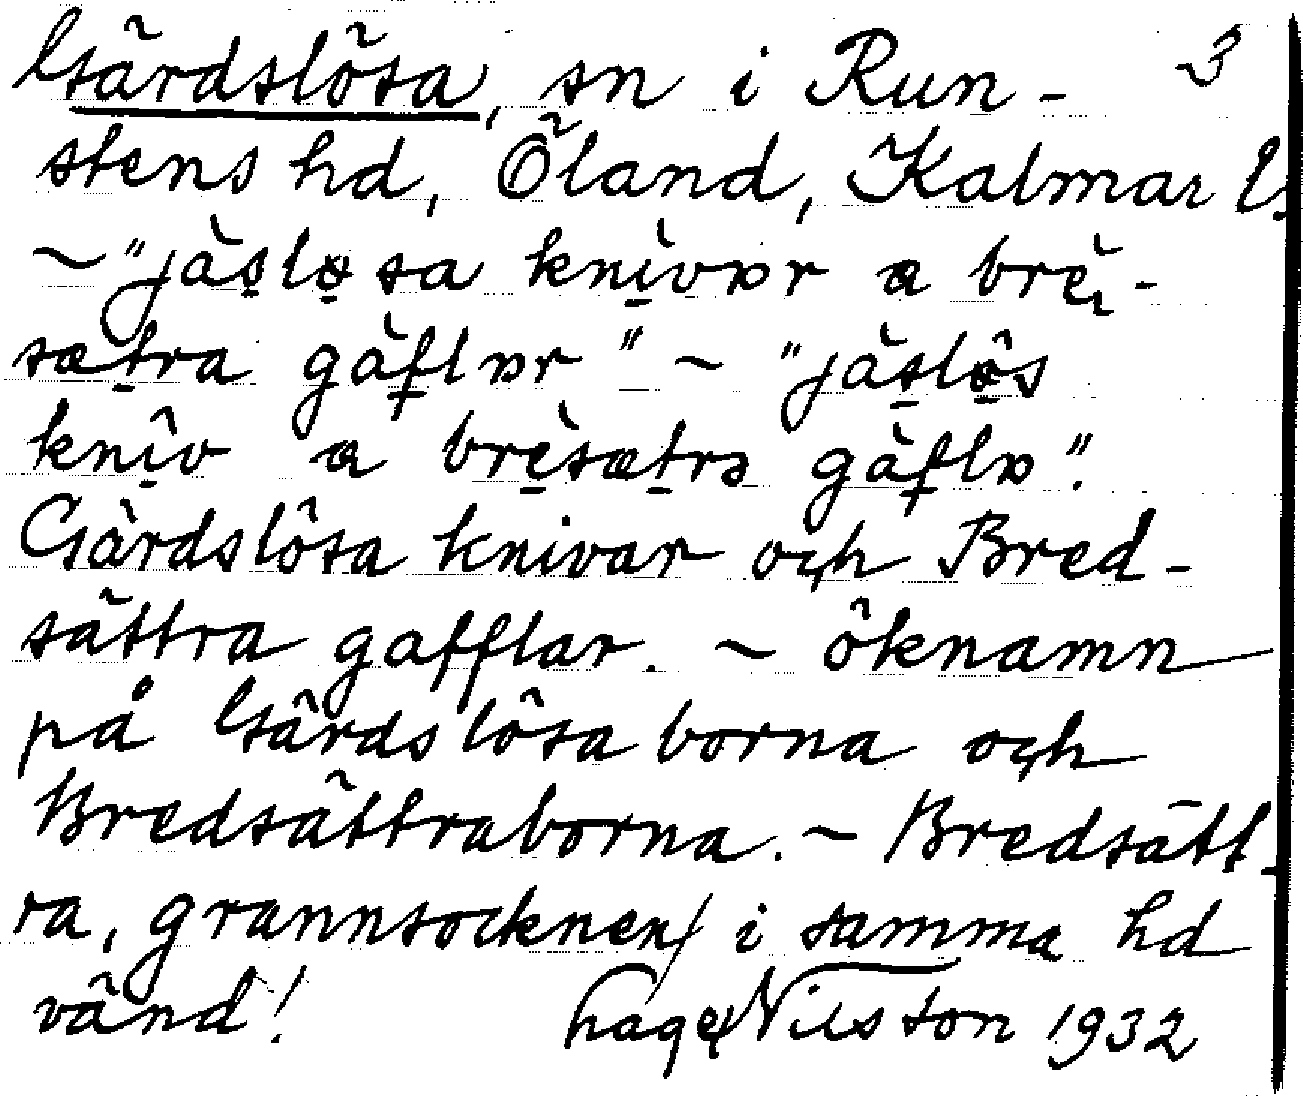 Gärdslösa, sn i Run- 3
stens hd, Öland, Kalmar l.
~ "jàs̱lø̱sa kni̱̇̀vɒr a brè̱ı-
sæṯra gàf̱lɒr" ~ "jàs̱lø̱̂s
knî̱v a brè̱sæṯrə gàf̱lɒ".
Gärdslösa knivar och Bred-
sättra gafflar. ~ öknamn
på Gärdslösaborna och
Bredsättraborna. ~ Bredsätt-
ra, grannsocknen i samma hd
vänd! Nilsson 1932